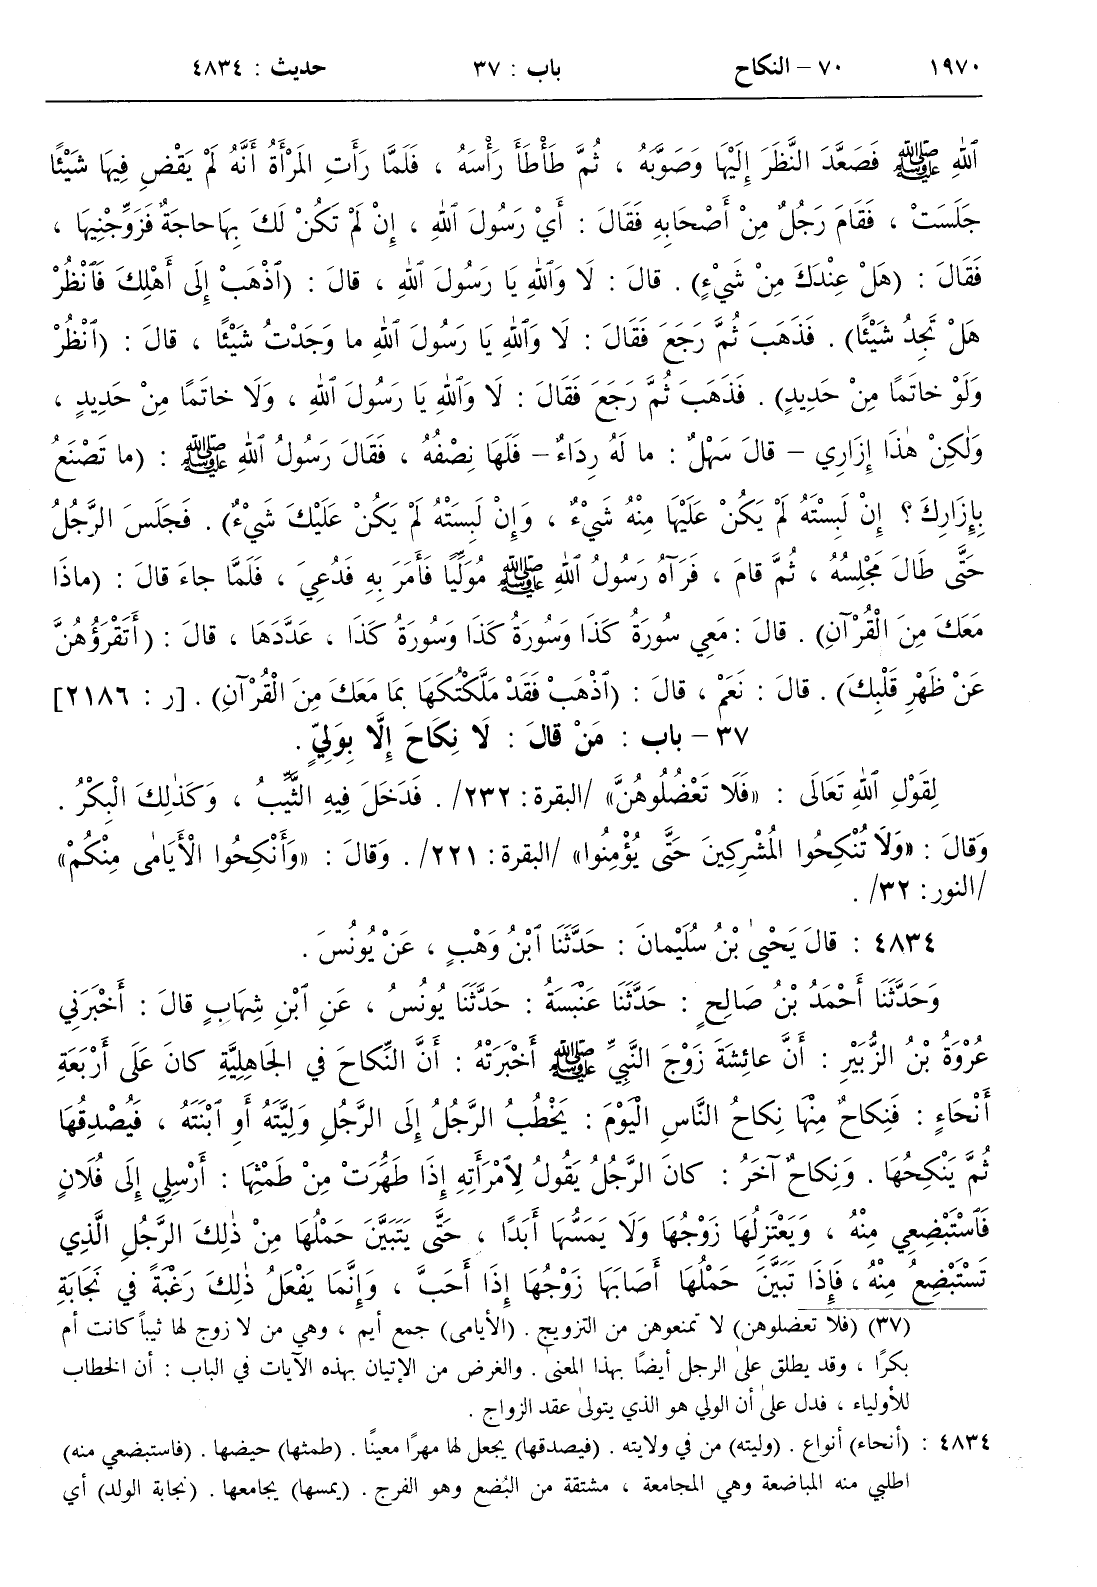 ١٩٧٠ ٧٠ – النكاح باب : ٣٧ حديث : ٤٨٣٤
ٱللهِ ﷺ فَصَعَّدَ النَّظَرَ إِلَيْهَا وَصَوَّبَهُ ، ثُمَّ طَأْطَأَ رَأْسَهُ ، فَلَمَّا رَأَتِ المَرْأَةُ أَنَّهُ لَمْ يَقْضِ فِيهَا شَيْئًا
جَلَسَتْ ، فَقَامَ رَجُلٌ مِنْ أَصْحَابِهِ فَقَالَ : أَيْ رَسُولَ ٱللهِ ، إِنْ لَمْ تَكُنْ لَكَ بِهَا حاجَةٌ فَزَوِّجْنِيهَا ،
فَقَالَ : (هَلْ عِنْدَكَ مِنْ شَيْءٍ) . قالَ : لَا وَٱللهِ يَا رَسُولَ ٱللهِ ، قالَ : (ٱذْهَبْ إِلَى أَهْلِكَ فَٱنْظُرْ
هَلْ تَجِدُ شَيْئًا) . فَذَهَبَ ثُمَّ رَجَعَ فَقَالَ : لَا وَٱللهِ يَا رَسُولَ ٱللهِ ما وَجَدْتُ شَيْئًا ، قالَ : (ٱنْظُرْ
وَلَوْ خاتَمًا مِنْ حَدِيدٍ) . فَذَهَبَ ثُمَّ رَجَعَ فَقَالَ : لَا وَٱللهِ يَا رَسُولَ ٱللهِ ، وَلَا خاتَمًا مِنْ حَدِيدٍ ،
وَلٰكِنْ هٰذَا إِزَارِي – قالَ سَهْلٌ : ما لَهُ رِدَاءٌ – فَلَهَا نِصْفُهُ ، فَقَالَ رَسُولُ ٱللهِ ﷺ : (ما تَصْنَعُ
بِإِزَارِكَ ؟ إِنْ لَبِسْتَهُ لَمْ يَكُنْ عَلَيْهَا مِنْهُ شَيْءٌ ، وَإِنْ لَبِسَتْهُ لَمْ يَكُنْ عَلَيْكَ شَيْءٌ) . فَجَلَسَ الرَّجُلُ
حَتَّى طَالَ مَجْلِسُهُ ، ثُمَّ قامَ ، فَرَآهُ رَسُولُ ٱللهِ ﷺ مُوَلِّيًا فَأَمَرَ بِهِ فَدُعِيَ ، فَلَمَّا جاءَ قالَ : (ماذَا
مَعَكَ مِنَ الْقُرْآنِ) . قالَ : مَعِي سُورَةُ كَذَا وَسُورَةُ كَذَا وَسُورَةُ كَذَا ، عَدَّدَهَا ، قالَ : (أَتَقْرَؤُهُنَّ
عَنْ ظَهْرِ قَلْبِكَ) . قالَ : نَعَمْ ، قالَ : (ٱذْهَبْ فَقَدْ مَلَّكْتُكَهَا بِمَا مَعَكَ مِنَ الْقُرْآنِ) . [ر : ٢١٨٦]
٣٧ – باب : مَنْ قالَ : لَا نِكَاحَ إِلَّا بِوَلِيٍّ .
لِقَوْلِ ٱللهِ تَعَالَى : «فَلَا تَعْضُلُوهُنَّ» /البقرة : ٢٣٢/ . فَدَخَلَ فِيهِ الثَّيِّبُ ، وَكَذٰلِكَ الْبِكْرُ .
وَقالَ : «وَلَا تُنْكِحُوا المُشْرِكِينَ حَتَّى يُؤْمِنُوا» /البقرة : ٢٢١/ . وَقالَ : «وَأَنْكِحُوا الْأَيَامٰى مِنْكُمْ»
/النور : ٣٢/ .
٤٨٣٤ : قالَ يَحْيىٰ بْنُ سُلَيْمانَ : حَدَّثَنَا ٱبْنُ وَهْبٍ ، عَنْ يُونُسَ .
وَحَدَّثَنَا أَحْمَدُ بْنُ صَالِحٍ : حَدَّثَنَا عَنْبَسَةُ : حَدَّثَنَا يُونُسُ ، عَنِ ٱبْنِ شِهَابٍ قالَ : أَخْبَرَنِي
عُرْوَةُ بْنُ الزُّبَيْرِ : أَنَّ عائِشَةَ زَوْجَ النَّبِيِّ ﷺ أَخْبَرَتْهُ : أَنَّ النِّكَاحَ فِي الجَاهِلِيَّةِ كانَ عَلَى أَرْبَعَةِ
أَنْحَاءٍ : فَنِكَاحٌ مِنْهَا نِكاحُ النَّاسِ الْيَوْمَ : يَخْطُبُ الرَّجُلُ إِلَى الرَّجُلِ وَلِيَّتَهُ أَوِ ٱبْنَتَهُ ، فَيُصْدِقُهَا
ثُمَّ يَنْكِحُهَا . وَنِكاحٌ آخَرُ : كانَ الرَّجُلُ يَقُولُ لِٱمْرَأَتِهِ إِذَا طَهُرَتْ مِنْ طَمْثِهَا : أَرْسِلِي إِلَى فُلَانٍ
فَٱسْتَبْضِعِي مِنْهُ ، وَيَعْتَزِلُهَا زَوْجُهَا وَلَا يَمَسُّهَا أَبَدًا ، حَتَّى يَتَبَيَّنَ حَمْلُهَا مِنْ ذٰلِكَ الرَّجُلِ الَّذِي
تَسْتَبْضِعُ مِنْهُ ، فَإِذَا تَبَيَّنَ حَمْلُهَا أَصَابَهَا زَوْجُهَا إِذَا أَحَبَّ ، وَإِنَّمَا يَفْعَلُ ذٰلِكَ رَغْبَةً فِي نَجَابَةِ
(٣٧) (فلا تعضلوهن) لا تمنعوهن من التزويج . (الأيامى) جمع أيم ، وهي من لا زوج لها ثيباً كانت أم
بكرًا ، وقد يطلق على الرجل أيضًا بهذا المعنى . والغرض من الإتيان بهذه الآيات في الباب : أن الخطاب
للأولياء ، فدل على أن الولي هو الذي يتولى عقد الزواج .
٤٨٣٤ : (أنحاء) أنواع . (وليته) من في ولايته . (فيصدقها) يجعل لها مهرًا معينًا . (طمثها) حيضها . (فاستبضعي منه)
اطلبي منه المباضعة وهي المجامعة ، مشتقة من البُضع وهو الفرج . (يمسها) يجامعها . (نجابة الولد) أي